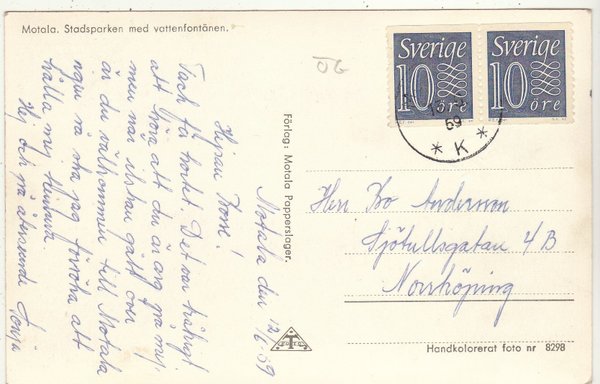 Motala. Stadsparken med vattenfontänen.
Motala den 12/6-59
Hejsan Bosse!
Tack för kortet. Det var tråkigt
att höra att du är arg på mej,
men när ilskan gått över
är du välkommen till Motala
så ska jag försöka att
hålla mig hemma.
Hej och på återseende Sonja
Förlag: Motala Papperslager.
ÖG
Sverige
10
öre
Sverige
10
öre
59
* K *
Herr Bo Andersson
Sjötullsgatan 4 B
Norrköping
T
Handkolorerat foto nr 8298